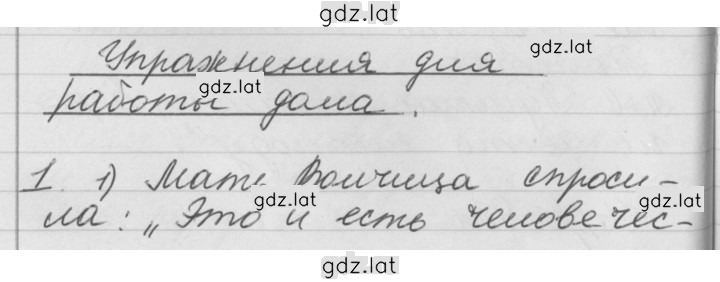 gdz.lat
Упражнения для
gdz.lat
gdz.lat
работы дома.
1. 1) Мать Волчица спроси-
gdz.lat
gdz.lat
ла: „Это и есть человечес-
gdz.lat